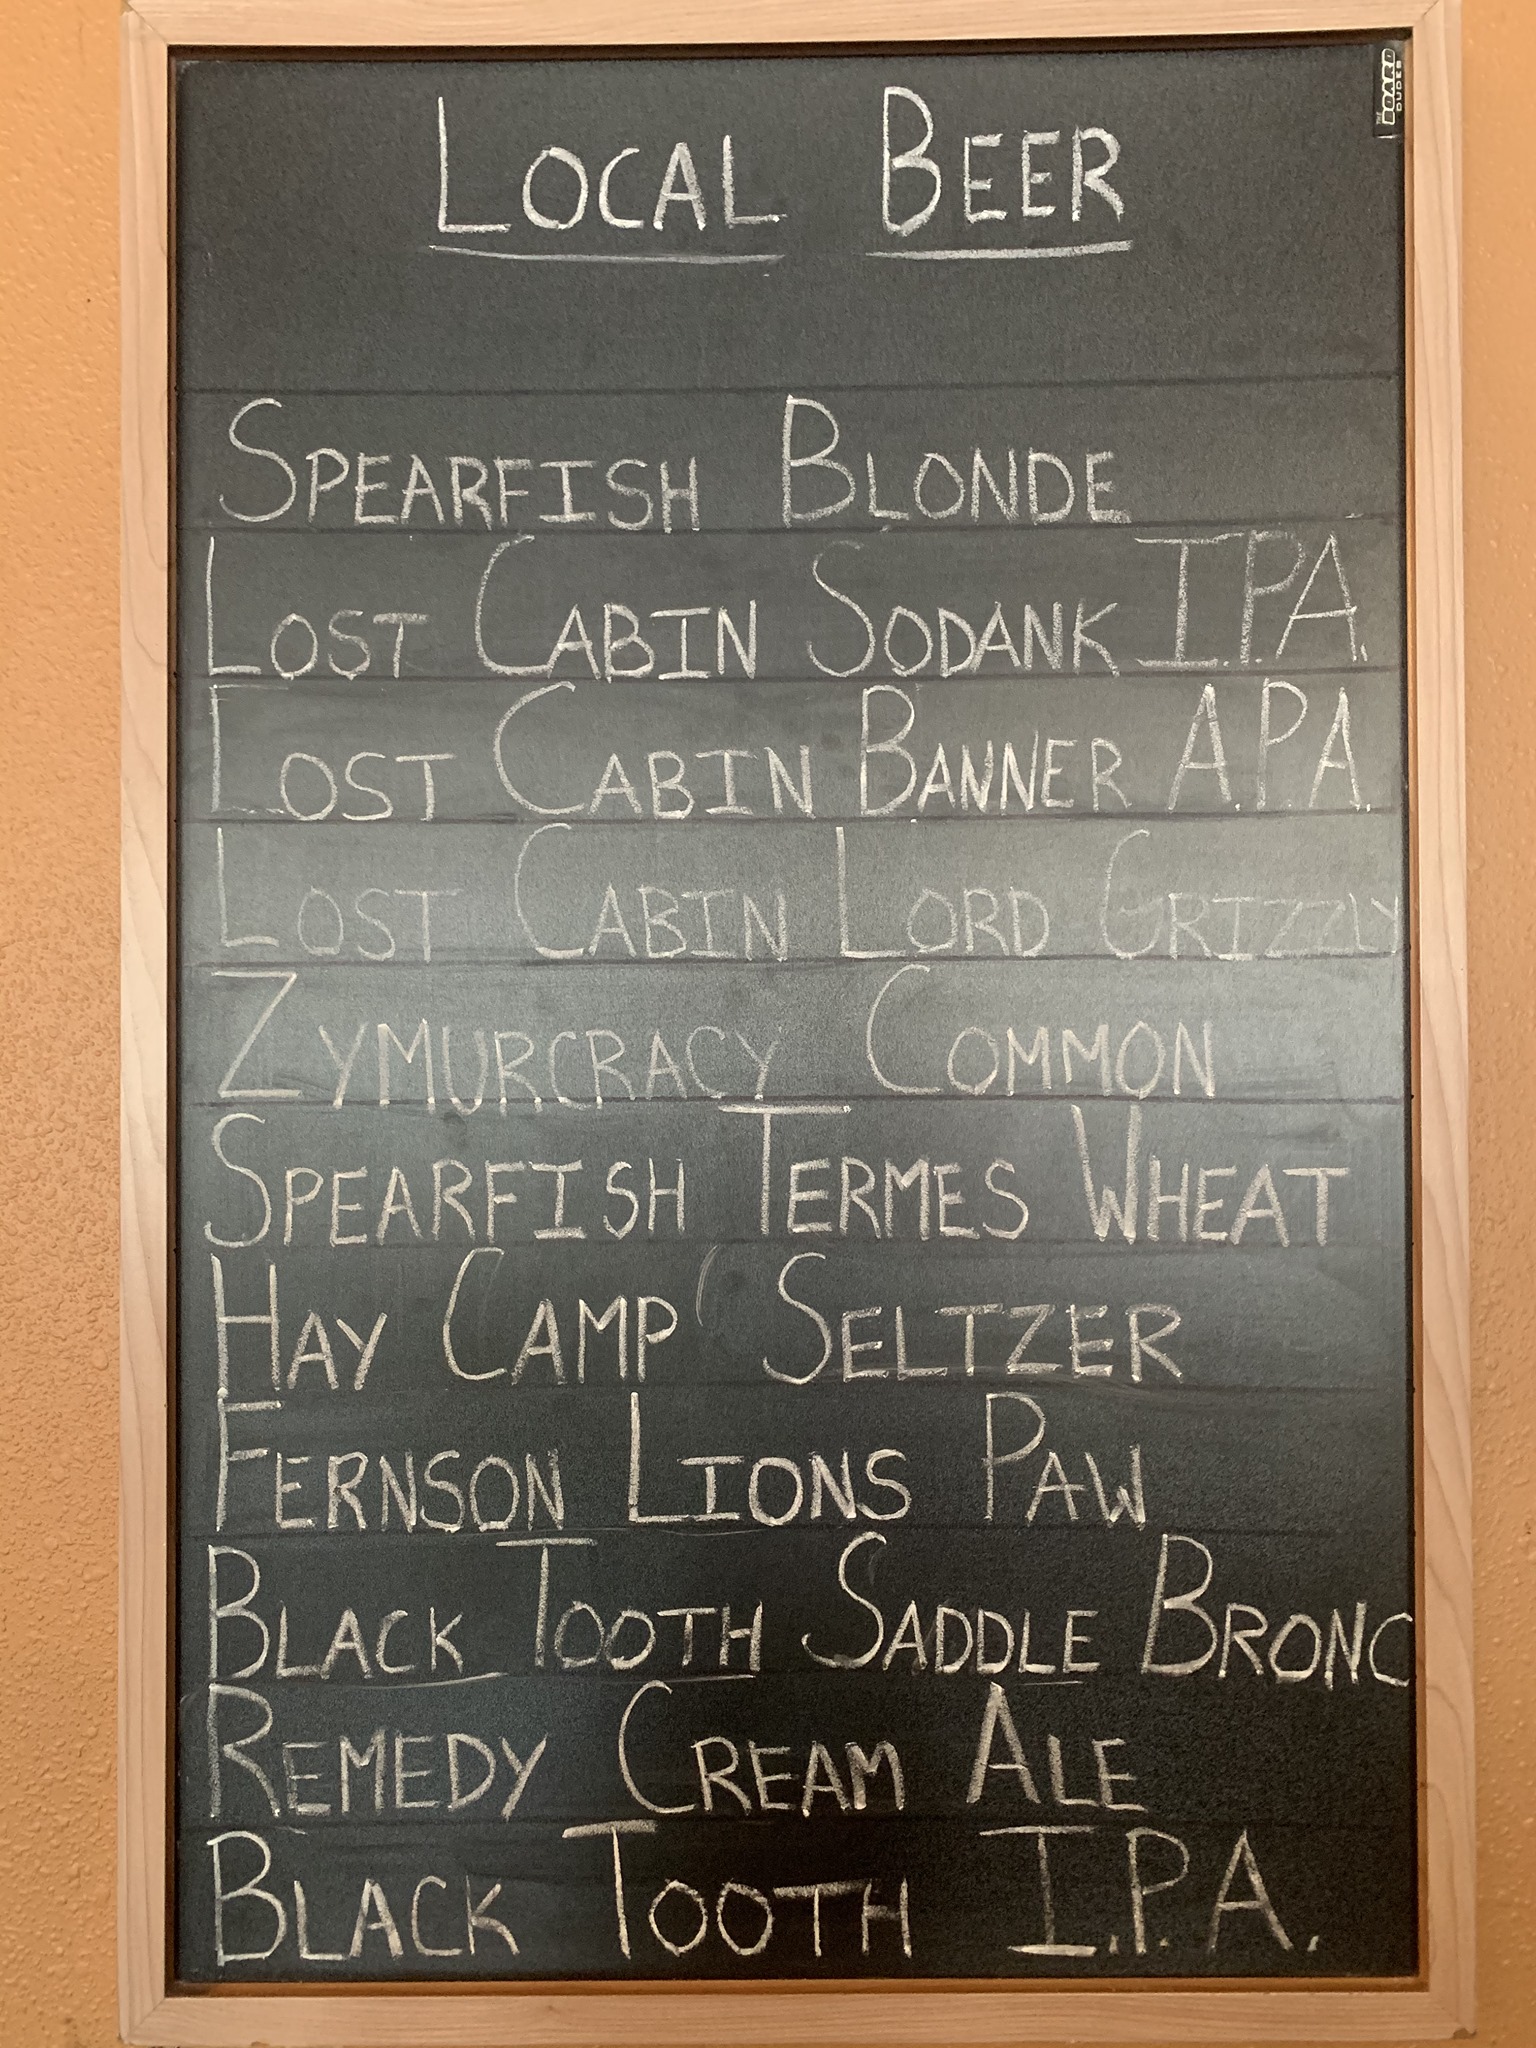 THE BOARD DUDES
LOCAL BEER
SPEARFISH BLONDE
LOST CABIN SODANK I.P.A.
LOST CABIN BANNER A.P.A.
LOST CABIN LORD GRIZZLY
ZYMURCRACY COMMON
SPEARFISH TERMES WHEAT
HAY CAMP SELTZER
FERNSON LIONS PAW
BLACK TOOTH SADDLE BRONC
REMEDY CREAM ALE
BLACK TOOTH I.P.A.